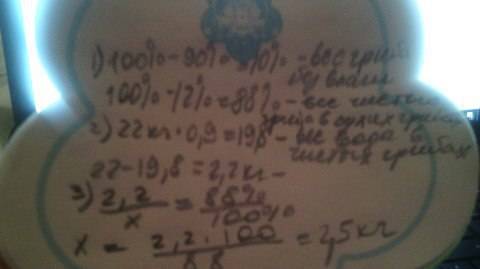 1) 100% - 90% = 10% - вес гриба
без влаги
100% - 12% = 88% - вес чистых
гриба в сухих грибах
2) 22кг · 0,9 = 198 - вес вода в
чистых грибах
22 - 19,8 = 2,2кг -
3) 2,2/x = 88%/100%
x = 2,2·100/88 = 2,5кг